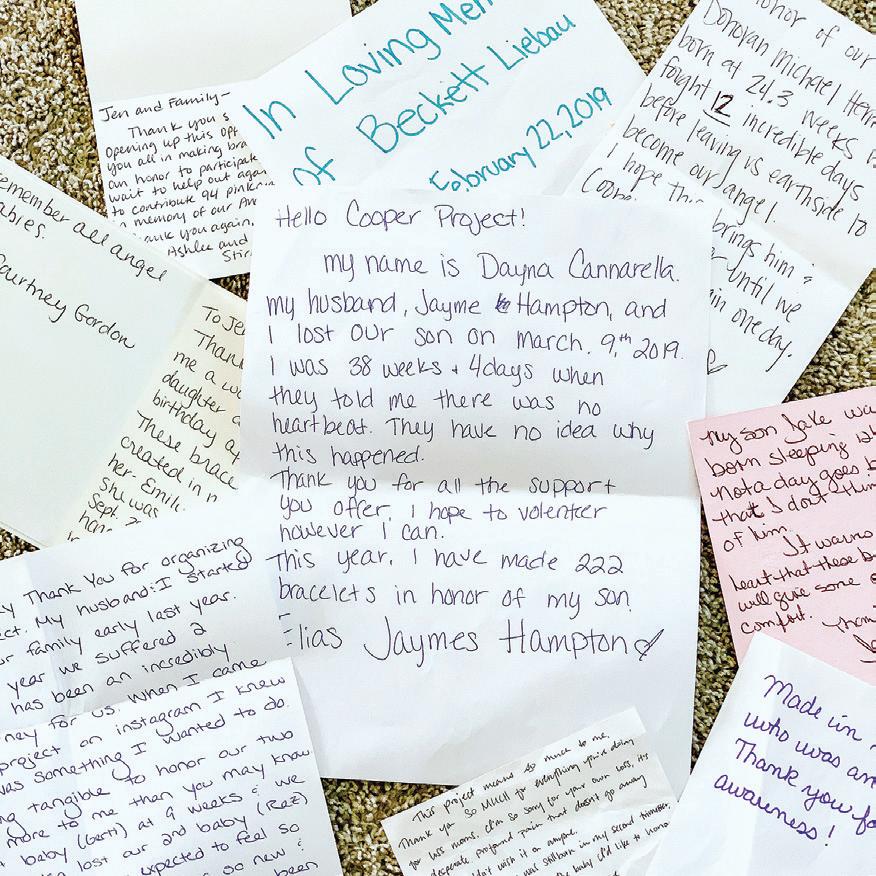 Jen and Family-
Thank you s
Opening up this op
you all in making bra
an honor to participat
wait to help out agai
to contribute 94 pink
in memory of our
ank you again,
Ashlee and
Sti
In Loving Mem
of Beckett Liebau
February 22, 2019
onor of our
Donovan Michael
born at 24.3 weeks
fought 12 incredible days
before leaving us earthside to
become our angel.
I hope this brings him &
Coope
until we
in one day.
emember all angel
abies.
Courtney Gordon
To Je
Than
me a w
daughter
birthday a
These brace
created in
her. Emili
She was
Sept. 2
Hello Cooper Project!
my name is Dayna Cannarella.
my husband, Jayme Hampton, and
I lost our son on march. 9,th 2019.
I was 38 weeks + 4days when
they told me there was no
heartbeat. They have no idea why
this happened.
Thank you for all the support
you offer, I hope to volenteer
however I can.
This year, I have made 222
bracelets in honor of my son,
Elias Jaymes Hampton
My son Jake wa
born sleeping
Not a day goes b
that I dont thin
of him.
It warms
heart that these b
will give some
comfort.
Made in
who was an
Thank you fo
awareness!
y Thank You for organizing
ect. My husband & I started
ur family early last year.
year we suffered 2
has been an incredibly
ney for us. When I came
project on instagram I knew
was something I wanted to do.
ng tangible to honor our two
more to me than you may know
baby (Gerti) at 9 weeks & we
lost our 2nd baby (Raz)
expected to feel so
so new &
been
This project means so much to me,
Thank you so MUCH for everything you're doing
for loss moms. I'm so sorry for your own loss, its
desperate, profound pain that doesn't go away
wish it on anyone.
was stillborn in my second trimester.
the baby I'd like to honor